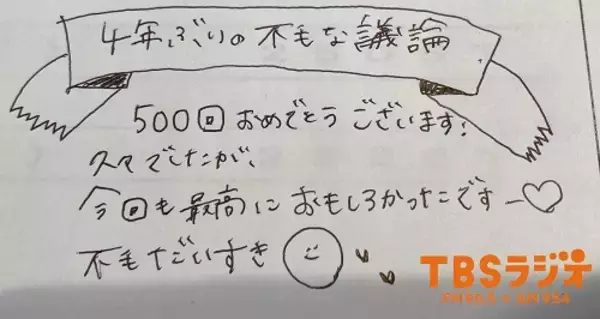 4年ぶりの不毛な議論
500回おめでとうございます!
久々でしたが、
今回も最高におもしろかったこです〜♡
不毛だいすき
TBSラジオ
FM 90.5 + AM 954